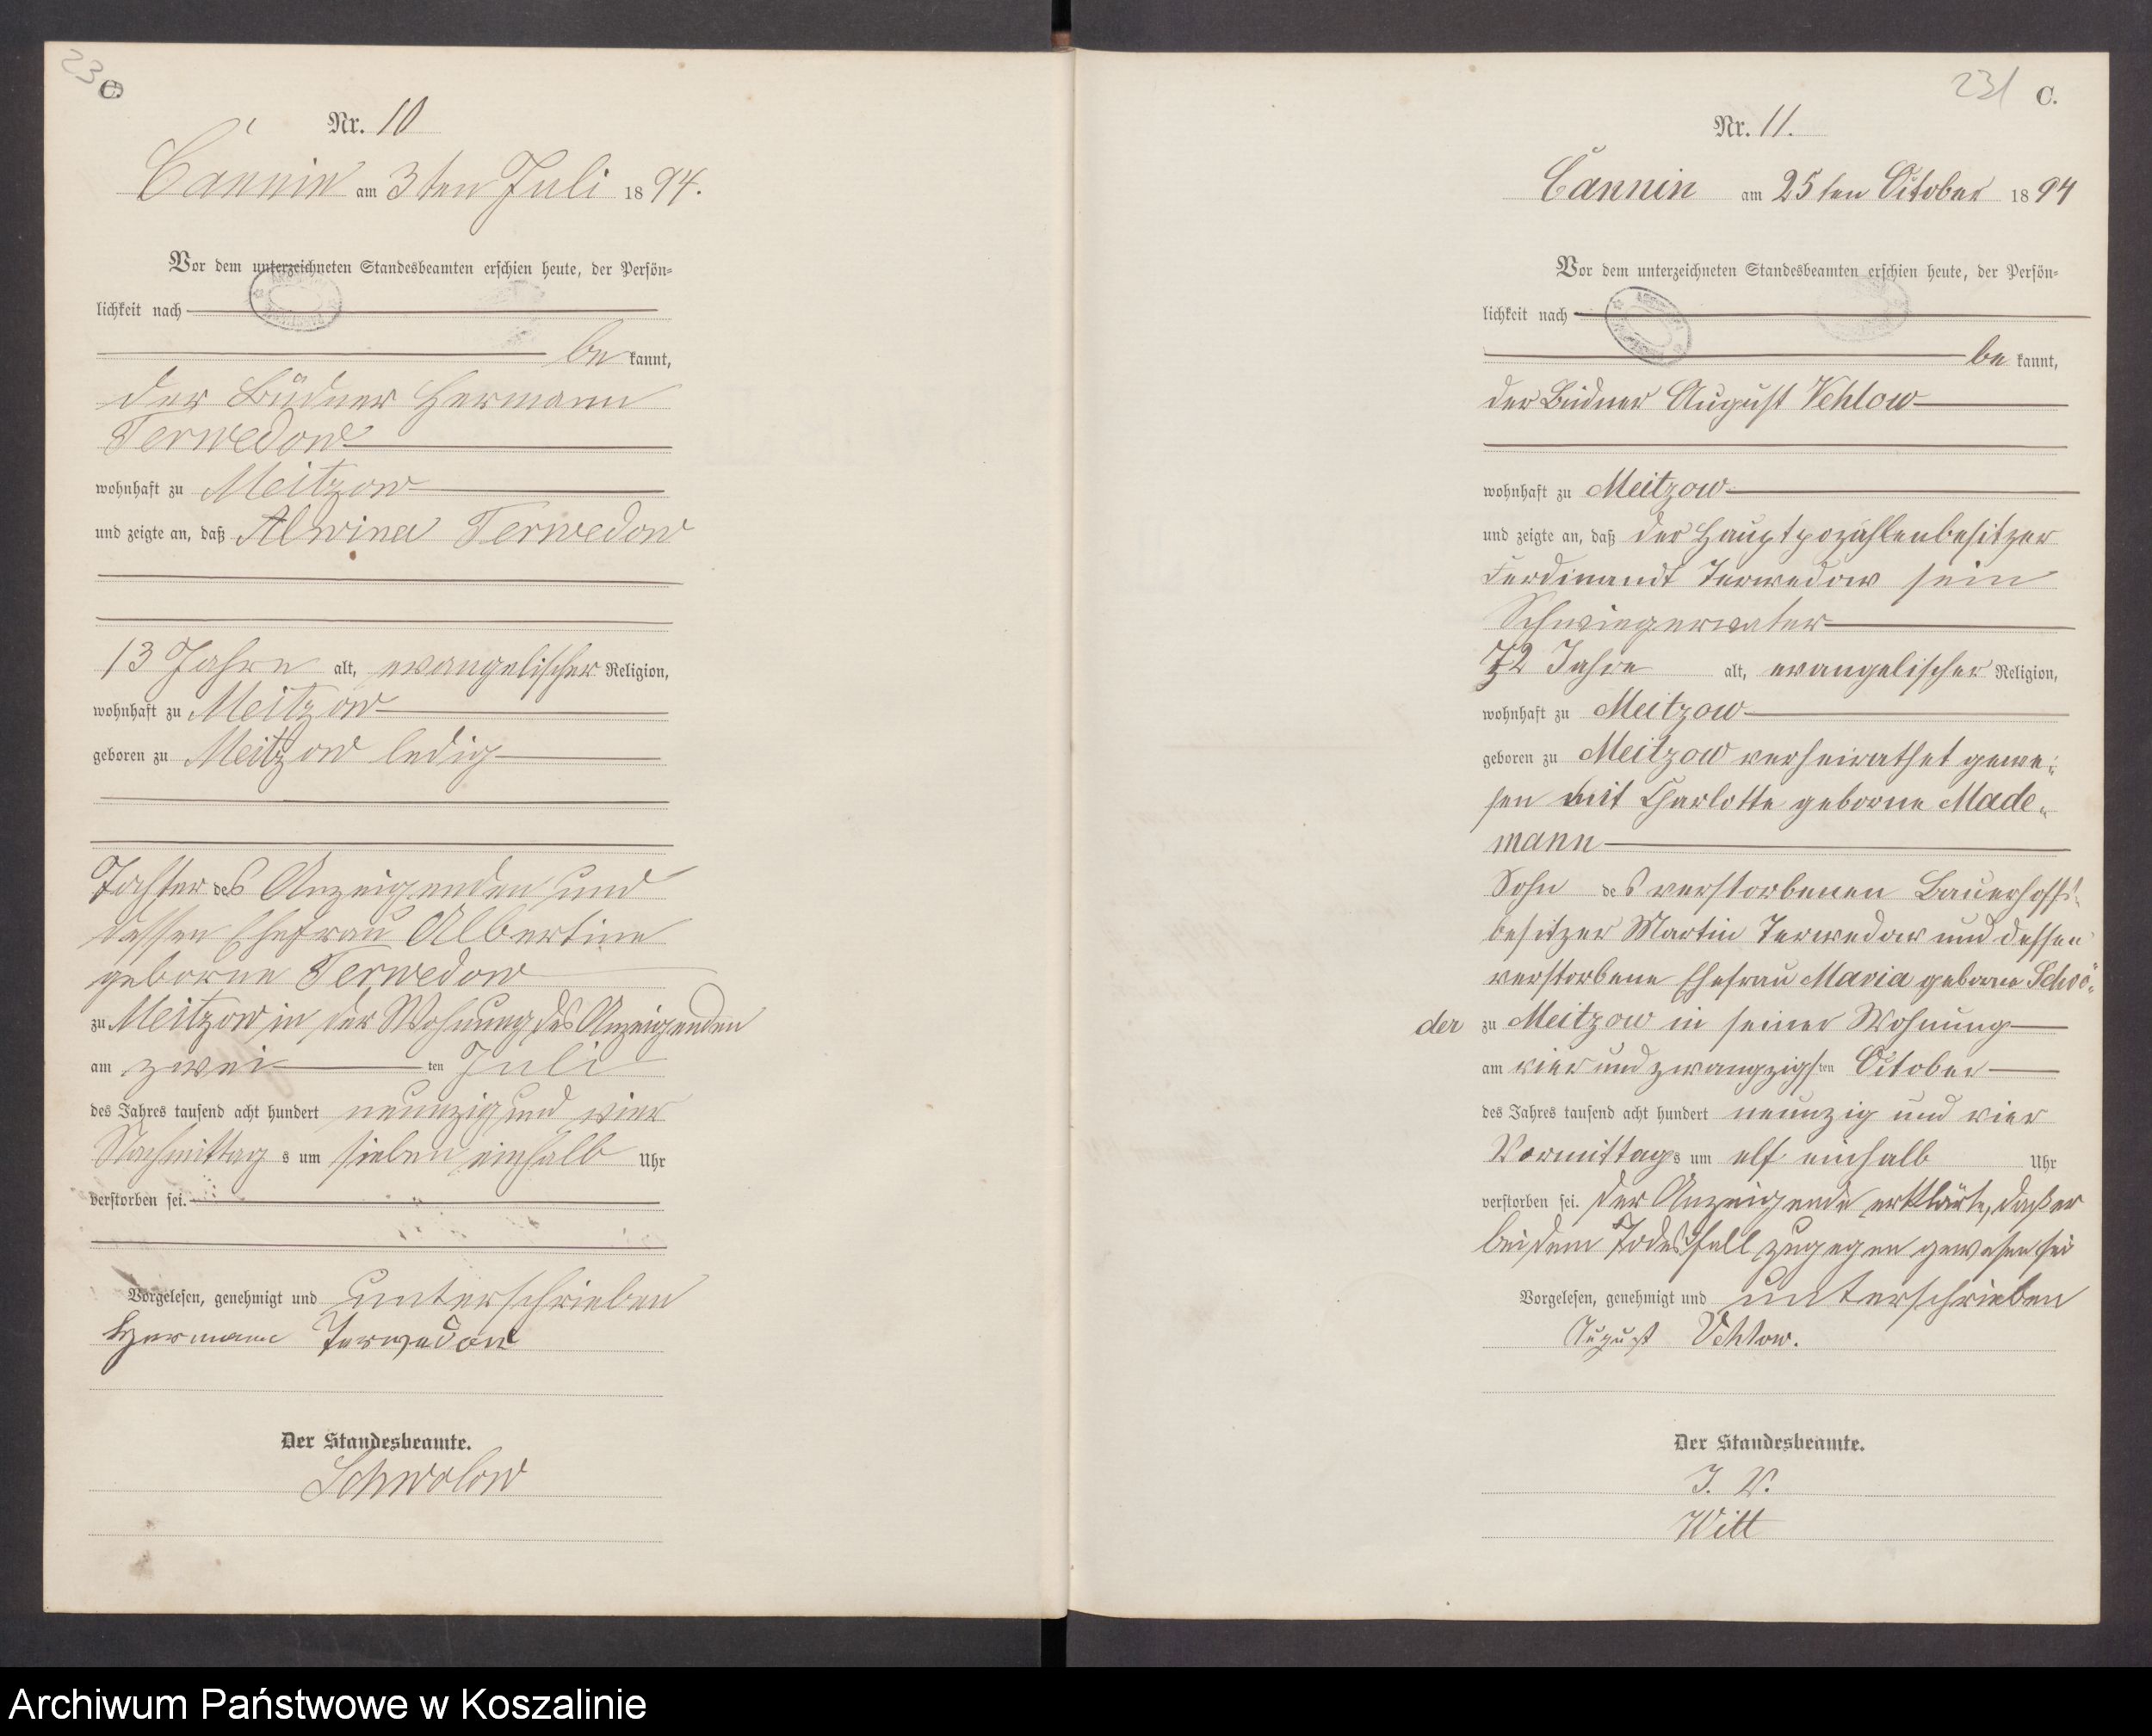 230
C.
Nr. 10
Cannin am 3ten Juli 1894.
Vor dem unterzeichneten Standesbeamten erschien heute, der Persön-
lichkeit nach
be kannt,
der Büdner Hermann
Terwedow
wohnhaft zu Meitzow
und zeigte an, daß Alwine Terwedow
13 Jahre alt, evangelischer Religion,
wohnhaft zu Meitzow
geboren zu Meitzow ledig
Tochter des Anzeigenden und
dessen Ehefrau Albertine
geborne Terwedow
zu Meitzow in der Wohnung des Anzeigenden
am zwei ten Juli
des Jahres tausend acht hundert neunzig und vier
Nachmittag s um sieben einhalb Uhr
verstorben sei.
Vorgelesen, genehmigt und unterschrieben
Hermann Terwedow
Der Standesbeamte.
Schwolow
231 C.
Nr. 11.
Cannin am 25ten October 1894
Vor dem unterzeichneten Standesbeamten erschien heute, der Persön-
lichkeit nach
be kannt,
der Büdner August Vehlow
wohnhaft zu Meitzow
und zeigte an, daß der
Ferdinandt Terwedow sein
Schwiegervater
72 Jahre alt, evangelischer Religion,
wohnhaft zu Meitzow
geboren zu Meitzow verheirathet gewe-
sen mit Charlotte geborne Made-
mann
Sohn des verstorbenen Bauerhofs-
besitzer Martin Terwedow und dessen
verstorbene Ehefrau Maria geborne Schrö-
der zu Meitzow in seiner Wohnung
am vier und zwangzigsten October
des Jahres tausend acht hundert neunzig und vier
Vormittags um elf einhalb Uhr
verstorben sei. Der Anzeigende erklärte, daß er
bei dem Todesfall zugegen gewesen sei
Vorgelesen, genehmigt und unterschrieben
August Vehlow.
Der Standesbeamte.
J. V.
Witt
Archiwum Państwowe w Koszalinie